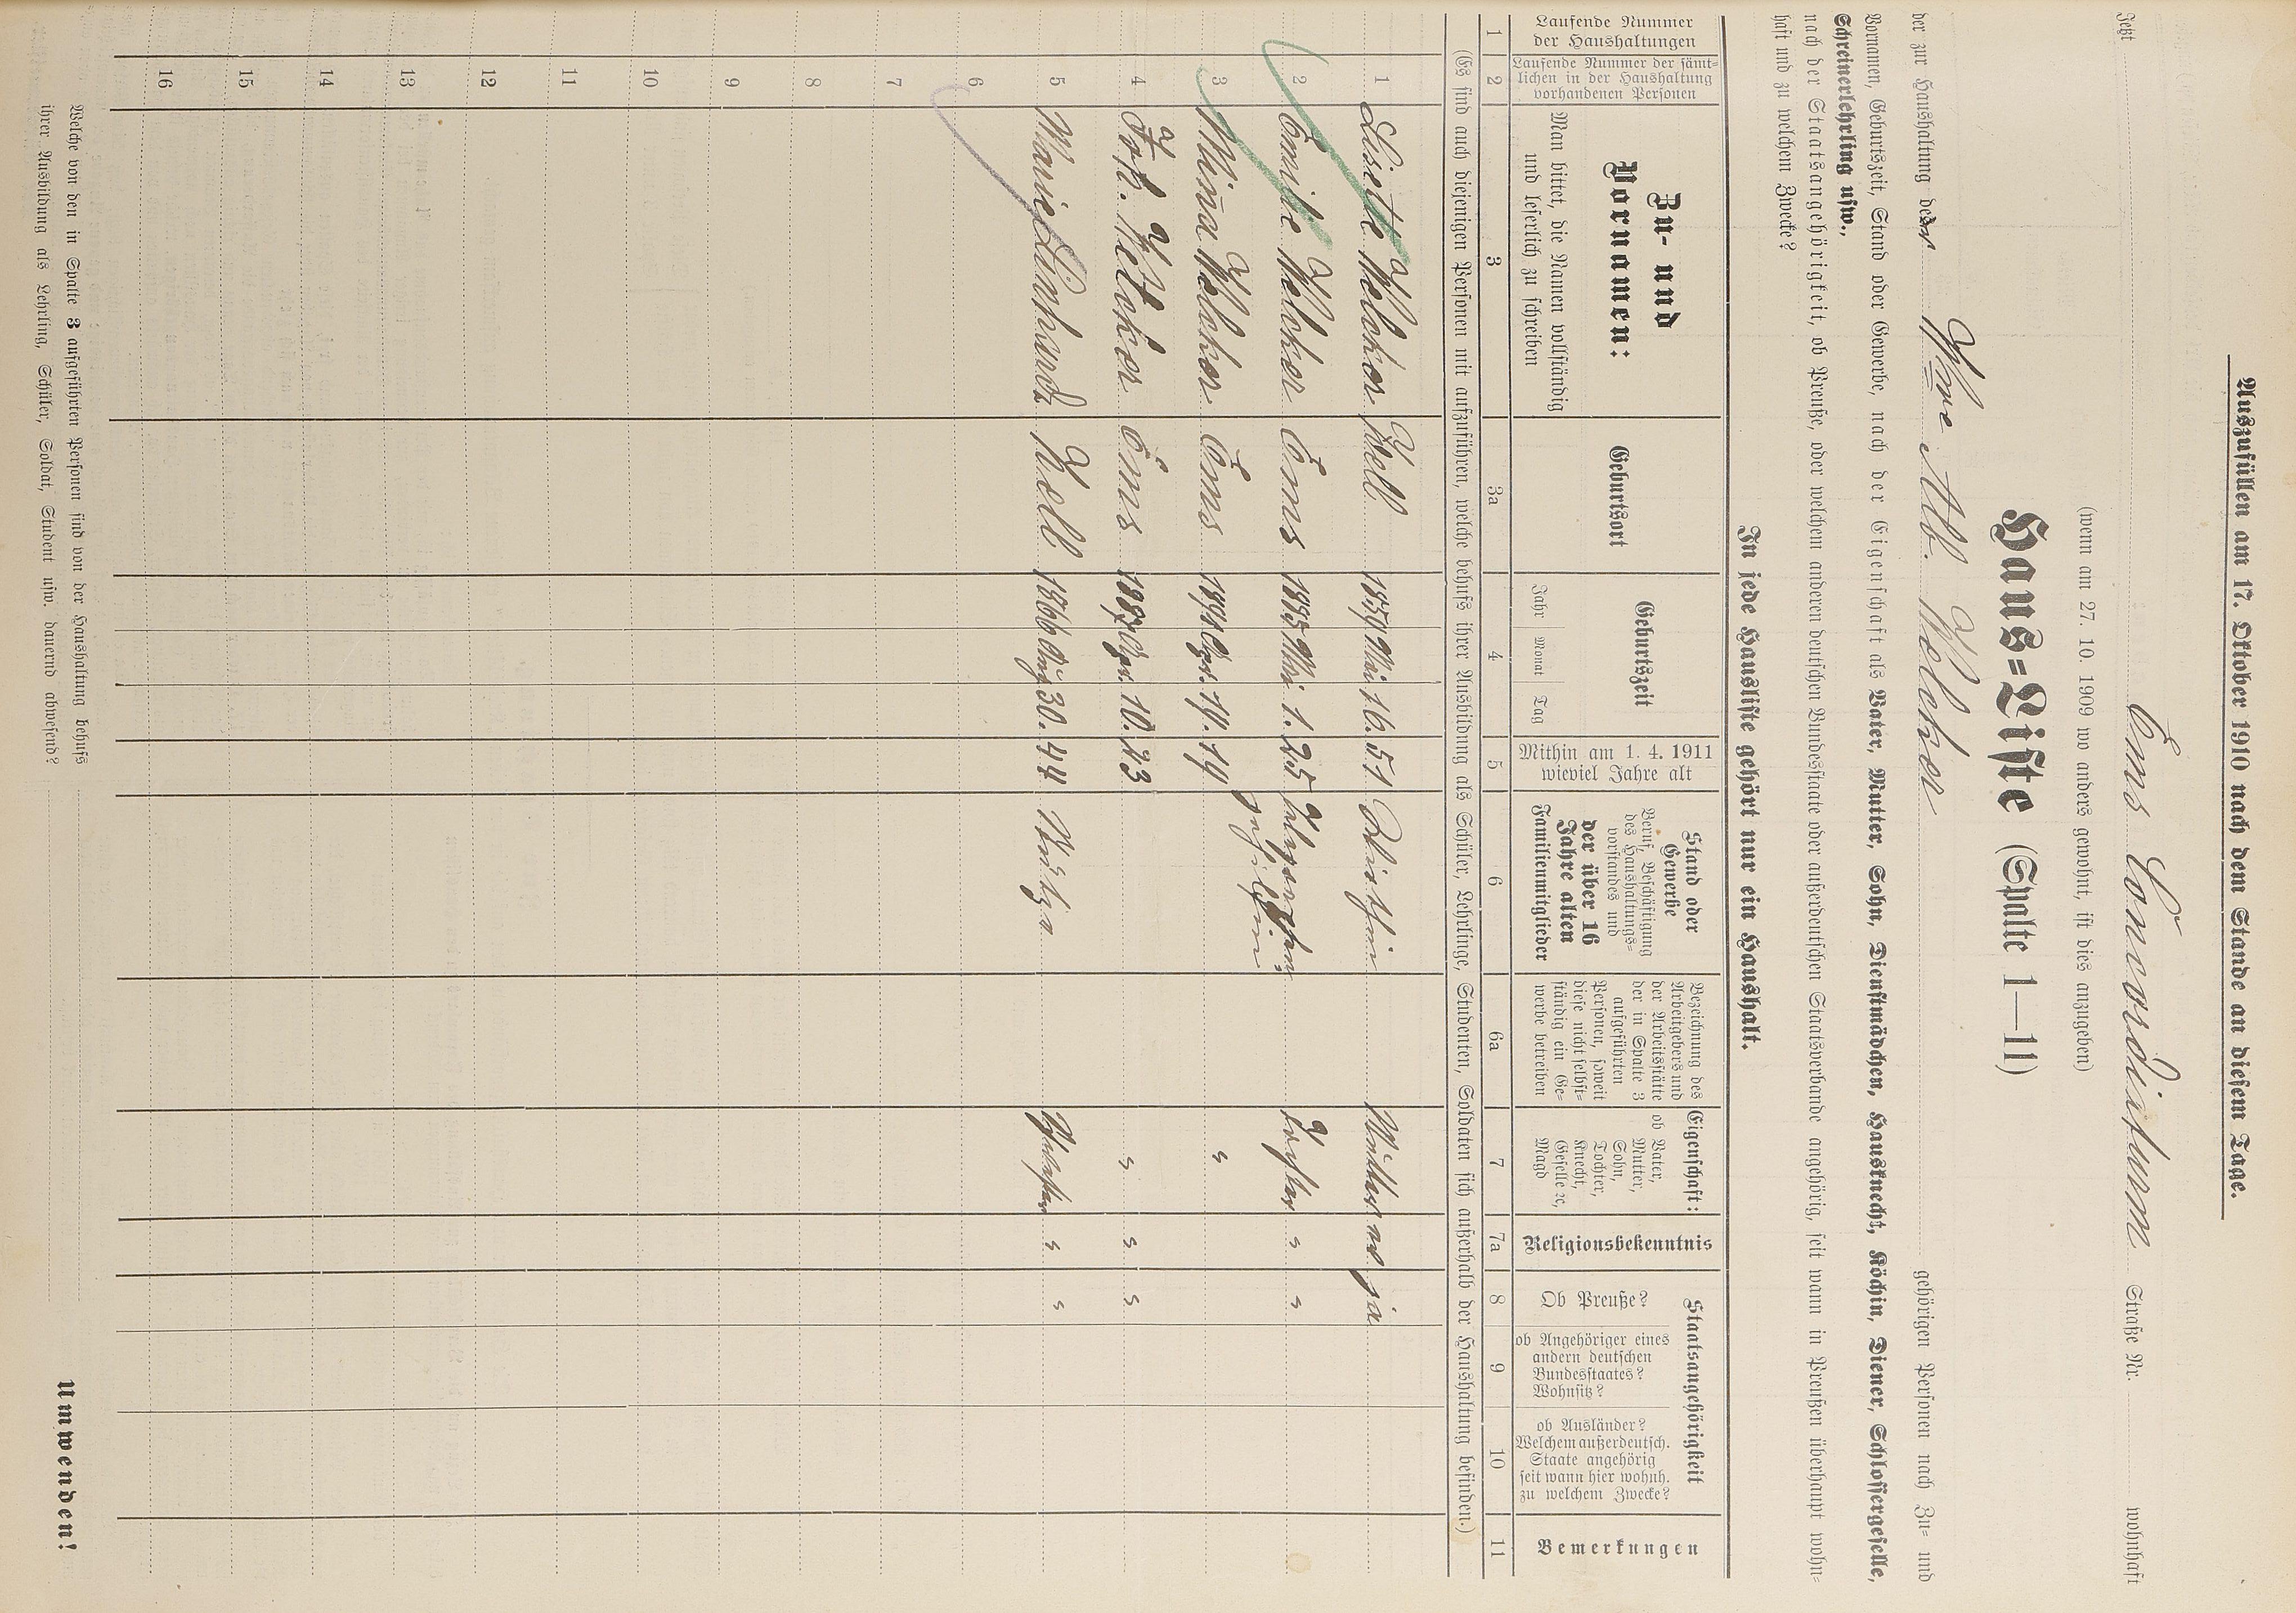 Auszufüllen am 17. Oktober 1910 nach dem Stande an diesem Tage.
Jetzt Ems Concordiaturm Straße Nr. wohnhaft
(wenn am 27. 10. 1909 wo anders gewohnt, ist dies anzugeben)
Haus=Liste (Spalte 1—11)
der zur Haushaltung der Wwe Alb. Welcker gehörigen Personen nach Zu= und
Vornamen, Geburtszeit, Stand oder Gewerbe, nach der Eigenschaft als Vater, Mutter, Sohn, Dienstmädchen, Hausknecht, Köchin, Diener, Schlossergeselle,
Schreinerlehrling usw.,
nach der Staatsangehörigkeit, ob Preuße, oder welchem anderen deutschen Bundesstaate oder außerdeutschen Staatsverbande angehörig, seit wann in Preußen überhaupt wohn=
haft und zu welchem Zwecke?
In jede Hausliste gehört nur ein Haushalt.
Laufende Nummer der Haushaltungen
Laufende Nummer der sämt=lichen in der Haushaltung vorhandenen Personen
Zu- und Vornamen:
Man bittet, die Namen vollständig und leserlich zu schreiben
Geburtsort
Geburtszeit
Jahr Monat Tag
Mithin am 1. 4. 1911 wieviel Jahre alt
Stand oder Gewerbe
Beruf, Beschäftigung des Haushaltungs=vorstandes und
der über 16 Jahre alten Familienmitglieder
Bezeichnung des Arbeitgebers und der Arbeitsstätte der in Spalte 3 aufgeführten Personen, soweit diese nicht selbst=ständig ein Ge=werbe betreiben
Eigenschaft:
ob Vater, Mutter, Sohn, Tochter, Knecht, Geselle ꝛc, Magd
Religionsbekenntnis
Staatsangehörigkeit
Ob Preuße?
ob Angehöriger eines andern deutschen Bundesstaates? Wohnsitz?
ob Ausländer? Welchem außerdeutsch. Staate angehörig seit wann hier wohnh. zu welchem Zwecke?
Bemerkungen
1 2 3 3a 4 5 6 6a 7 7a 8 9 10 11
(Es sind auch diejenigen Personen mit aufzuführen, welche behufs ihrer Ausbildung als Schüler, Lehrlinge, Studenten, Soldaten sich außerhalb der Haushaltung befinden.)
1 Lisette Welcker Zell 1859 Mai 16. 51 Mutter ja
2 Emilie Welcker Ems 1885 Mai 1. 25 Tochter " "
3 Minna Welcker Ems 1891 19 "
4 Joh. Welcker Ems 1887 10. 23 " " "
5 Marie Linkardt Zell 1866 Aug 30. 44 " "
6
7
8
9
10
11
12
13
14
15
16
Welche von den in Spalte 3 aufgeführten Personen sind von der Haushaltung behufs
ihrer Ausbildung als Lehrling, Schüler, Soldat, Student usw. dauernd abwesend?
Umwenden!